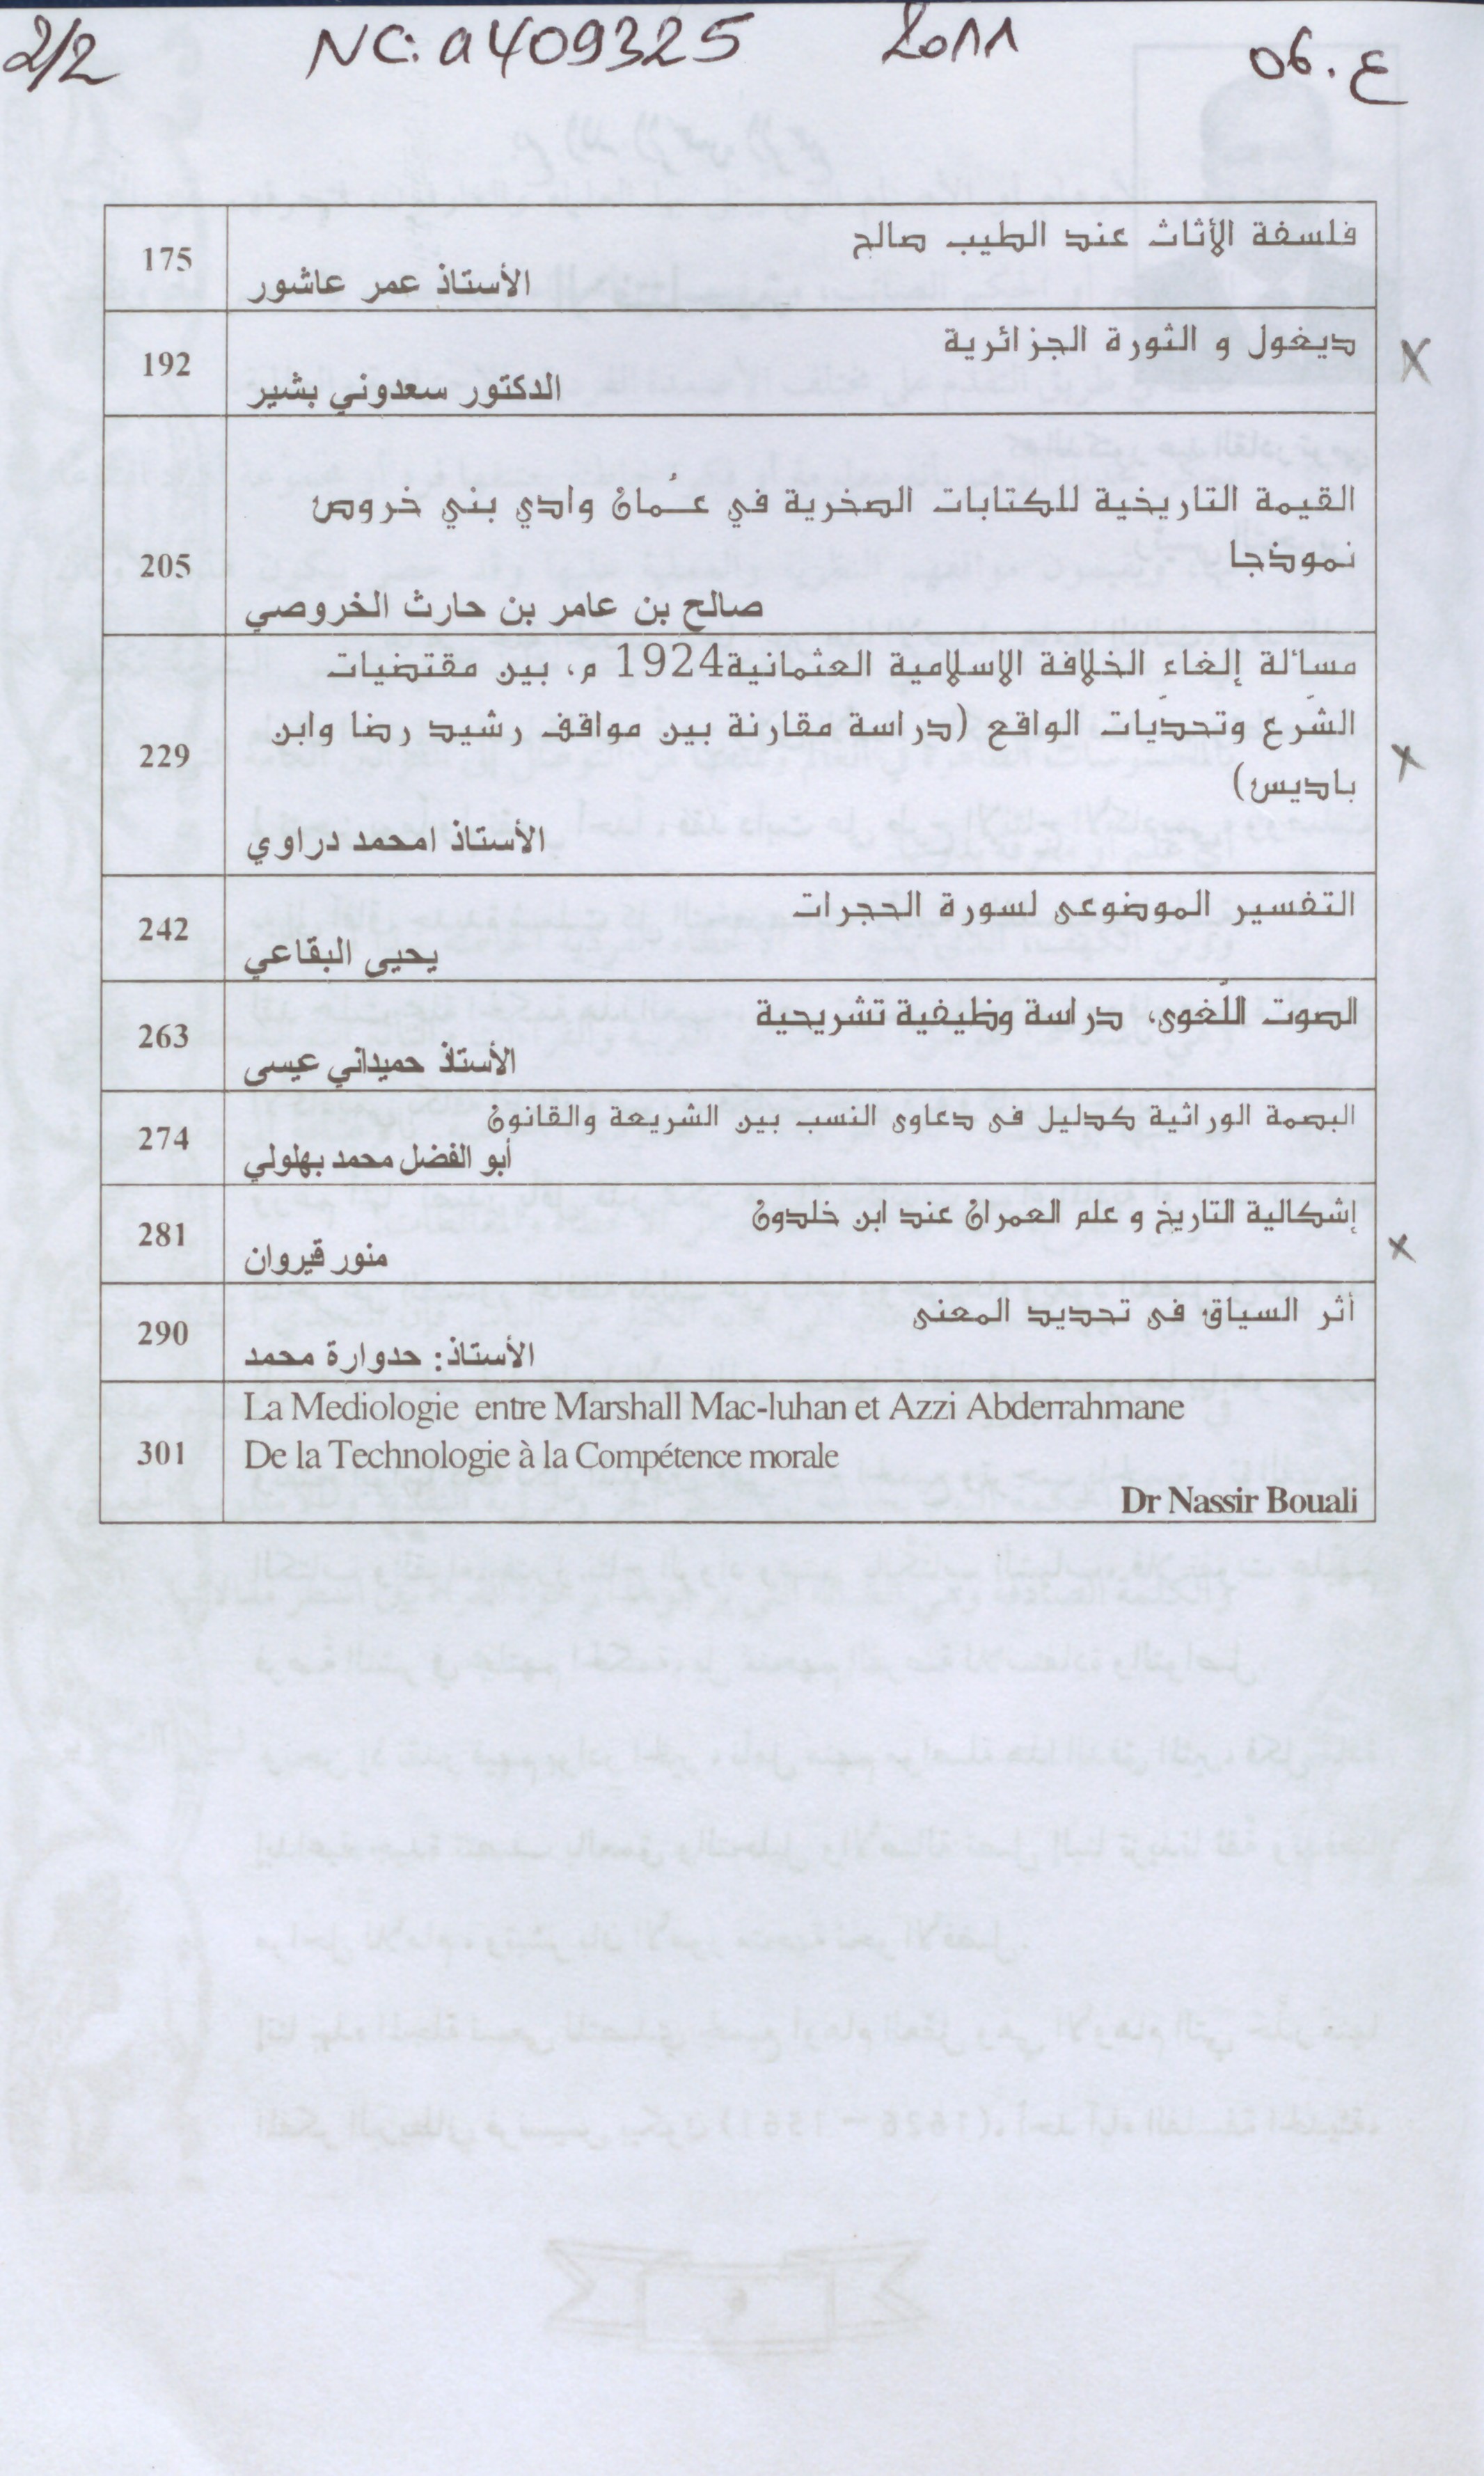 2/2 NC: a409325 2011 ع.06
فلسفة الأثاث عند الطيب صالح
175
الأستاذ عمر عاشور
ديغول و الثورة الجزائرية
192
الدكتور سعدوني بشير
القيمة التاريخية للكتابات الصخرية في عُمان وادي بني خروص
نموذجا
205
صالح بن عامر بن حارث الخروصي
مسألة إلغاء الخلافة الإسلامية العثمانية1924 م، بين مقتضيات
الشّرع وتحدّيات الواقع (دراسة مقارنة بين مواقف رشيد رضا وابن
باديس)
229
الأستاذ امحمد دراوي
التفسير الموضوعي لسورة الحجرات
242
يحيى البقاعي
الصوت اللّغوي، دراسة وظيفية تشريحية
263
الأستاذ حميداني عيسى
البصمة الوراثية كدليل في دعاوى النسب بين الشريعة والقانون
274
أبو الفضل محمد بهلولي
إشكالية التاريخ و علم العمران عند ابن خلدون
281
منور قيروان
أثر السياق في تحديد المعنى
290
الأستاذ: حدوارة محمد
La Mediologie entre Marshall Mac-luhan et Azzi Abderrahmane
301
De la Technologie à la Compétence morale
Dr Nassir Bouali